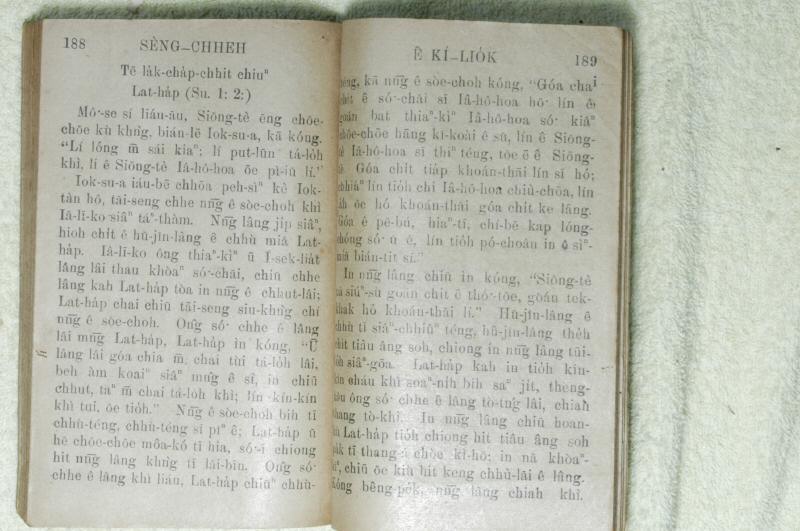 188 SÈNG-CHHEH
Tē la̍k-cha̍p-chhit chiuⁿ
Lat-ha̍p (Su. 1: 2:)
Mô͘-se sí liáu-āu, Siōng-tè ēng chōe-
chōe kù khǹg, bián-lē Iok-su-a, kā kóng.
“Lí lóng m̄ sái kiaⁿ; lí put-lūn tá-lo̍h
khì, lí ê Siōng-tè Iâ-hô-hoa ōe pì-iū lí.”
Iok-su-a iáu-bē chhōa peh-sìⁿ kè Iok-
tàn hô, tāi-seng chhe nn̄g ê sòe-choh khì
Iâ-lī-ko siâⁿ táⁿ-thàm. Nn̄g lâng ji̍p siâⁿ,
hioh chit ê hū-jîn-lâng ê chhù miâ Lat-
ha̍p. Iâ-lī-ko ông thiaⁿ-kìⁿ ū Í-sek-lia̍t
lâng lâi thau khòaⁿ só͘-chāi, chiū chhe
lâng kah Lat-ha̍p tòa in nn̄g ê chhut-lâi;
Lat-ha̍p chai chiū tāi-seng siu-khǹg chí
nn̄g ê sòe-choh. Ông só͘ chhe ê lâng
lâi mn̄g Lat-ha̍p, Lat-ha̍p in kóng, “Ū
lâng lâi góa chia m̄ chai tùi tá-lo̍h lâi,
beh àm koaiⁿ siâⁿ mn̂g ê sî, in chiū
chhut, taⁿ m̄ chai tá-lo̍h khì; lín kín-kín
khì tui, ōe tio̍h.” Nn̄g ê sòe-choh bih tī
chhù-téng, chhù-téng sī pîⁿ ê; Lat-ha̍p ū
hē chōe-chōe môa-kó tī hia, só͘-í chiong
hit nn̄g lâng khǹg tī lāi-bīn. Ông só͘
chhe ê lâng khì liáu, Lat-ha̍p chiūⁿ chhù-
Ê KÍ-LIO̍K 189
téng, kā nn̄g ê sòe-choh kóng, “Góa chai
chit ê só͘-chāi sī Iâ-hô-hoa hō͘ lín ê
goán bat thiaⁿ-kìⁿ Iâ-hô-hoa só͘ kiâⁿ
chōe-chōe hāng kî-koài ê sū, lín ê Siōng-
tè Iâ-hô-hoa sī thiⁿ téng, tōe ē ê Siōng-
tè. Góa chit tia̍p khoán-thāi lín sī hó;
chhiáⁿ lín tio̍h chí Iâ-hô-hoa chiù-chōa, lín
ōe hó khoán-thāi góa chit ke lâng.
Góa ê pē-bú, hiaⁿ-tī, chí-bē kap lóng-
chóng só͘ ū ê, lín tio̍h pó-choân in ê sìⁿ-
miā bián-tit sí.”
In nn̄g lâng chiū in kóng, “Siōng-tè
nā siúⁿ-sù goán chit ê thó͘-tōe, goán tek-
khak hó khoán-thāi lí.” Hū-jîn-lâng ê
chhù tī siâⁿ-chhiûⁿ téng, hū-jîn-lâng the̍h
chi̍t tiâu âng soh, chiong in nn̄g lâng tūi-
lo̍h siâⁿ-gōa. Lat-ha̍p kah in tio̍h kín-
kín cháu khì soaⁿ-ni̍h bih saⁿ ji̍t, theng-
hāu ông só͘ chhe ê lâng tò-tńg lâi, chiah
thang tò-khì. In nn̄g lâng chiū hoan-
hù Lat-ha̍p tio̍h chiong hit tiâu âng soh
pa̍k tī thang-á chòe kì-hō; in nā khòaⁿ-
kìⁿ, chiū ōe kiù hit keng chhù-lāi ê lâng.
Kóng bêng-pe̍k, nn̄g lâng chiah khì.